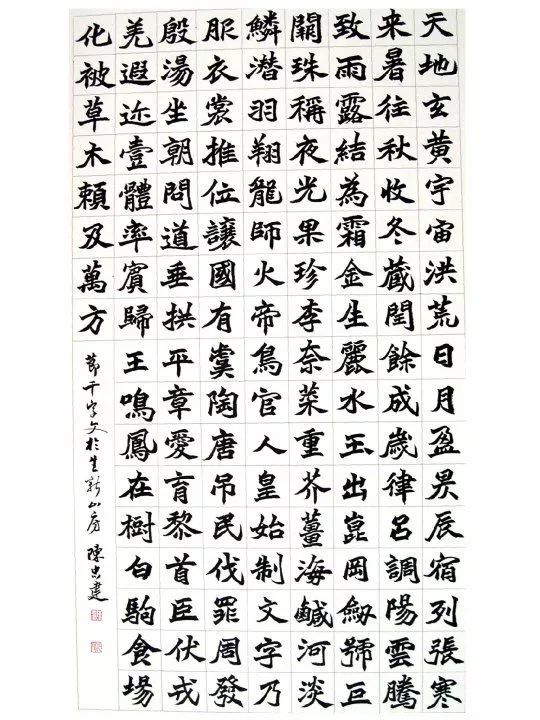 天地玄黃宇宙洪荒日月盈昃辰宿列張寒
来暑往秋收冬藏閏餘成歲律呂調陽雲騰
致雨露結為霜金生麗水玉出崑岡劔號巨
闕珠稱夜光果珍李奈菜重芥薑海鹹河淡
鱗潜羽翔龍師火帝鳥官人皇始制文字乃
服衣裳推位讓國有虞陶唐吊民伐罪周發
殷湯坐朝問道垂拱平章愛育黎首臣伏戎
羌遐迩壹體率賓歸王鳴鳳在樹白駒食場
化被草木賴及萬方
節千字文於生新山房 陳忠建